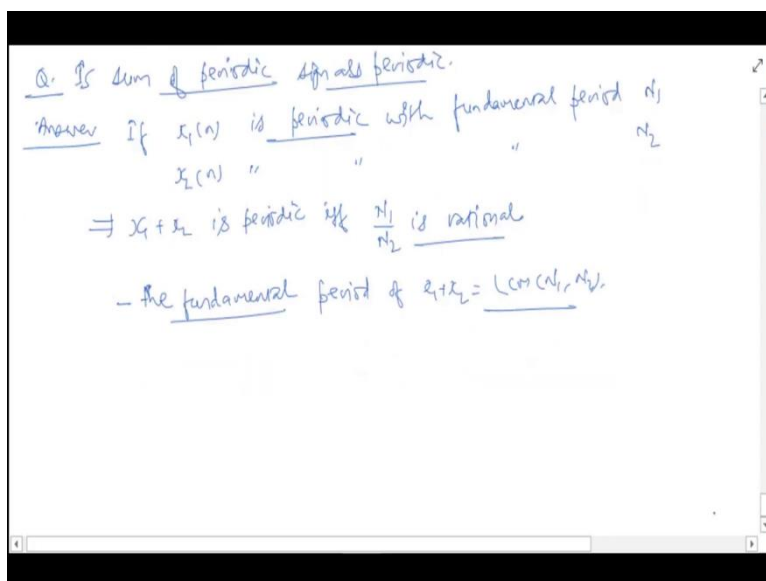 Q. Is sum of periodic signals periodic.
Answer If x₁(n) is periodic with fundamental period N₁
x₂(n) " " " N₂
⇒ x₁+x₂ is periodic iff N₁/N₂ is rational
- the fundamental period of x₁+x₂ = LCM(N₁, N₂).